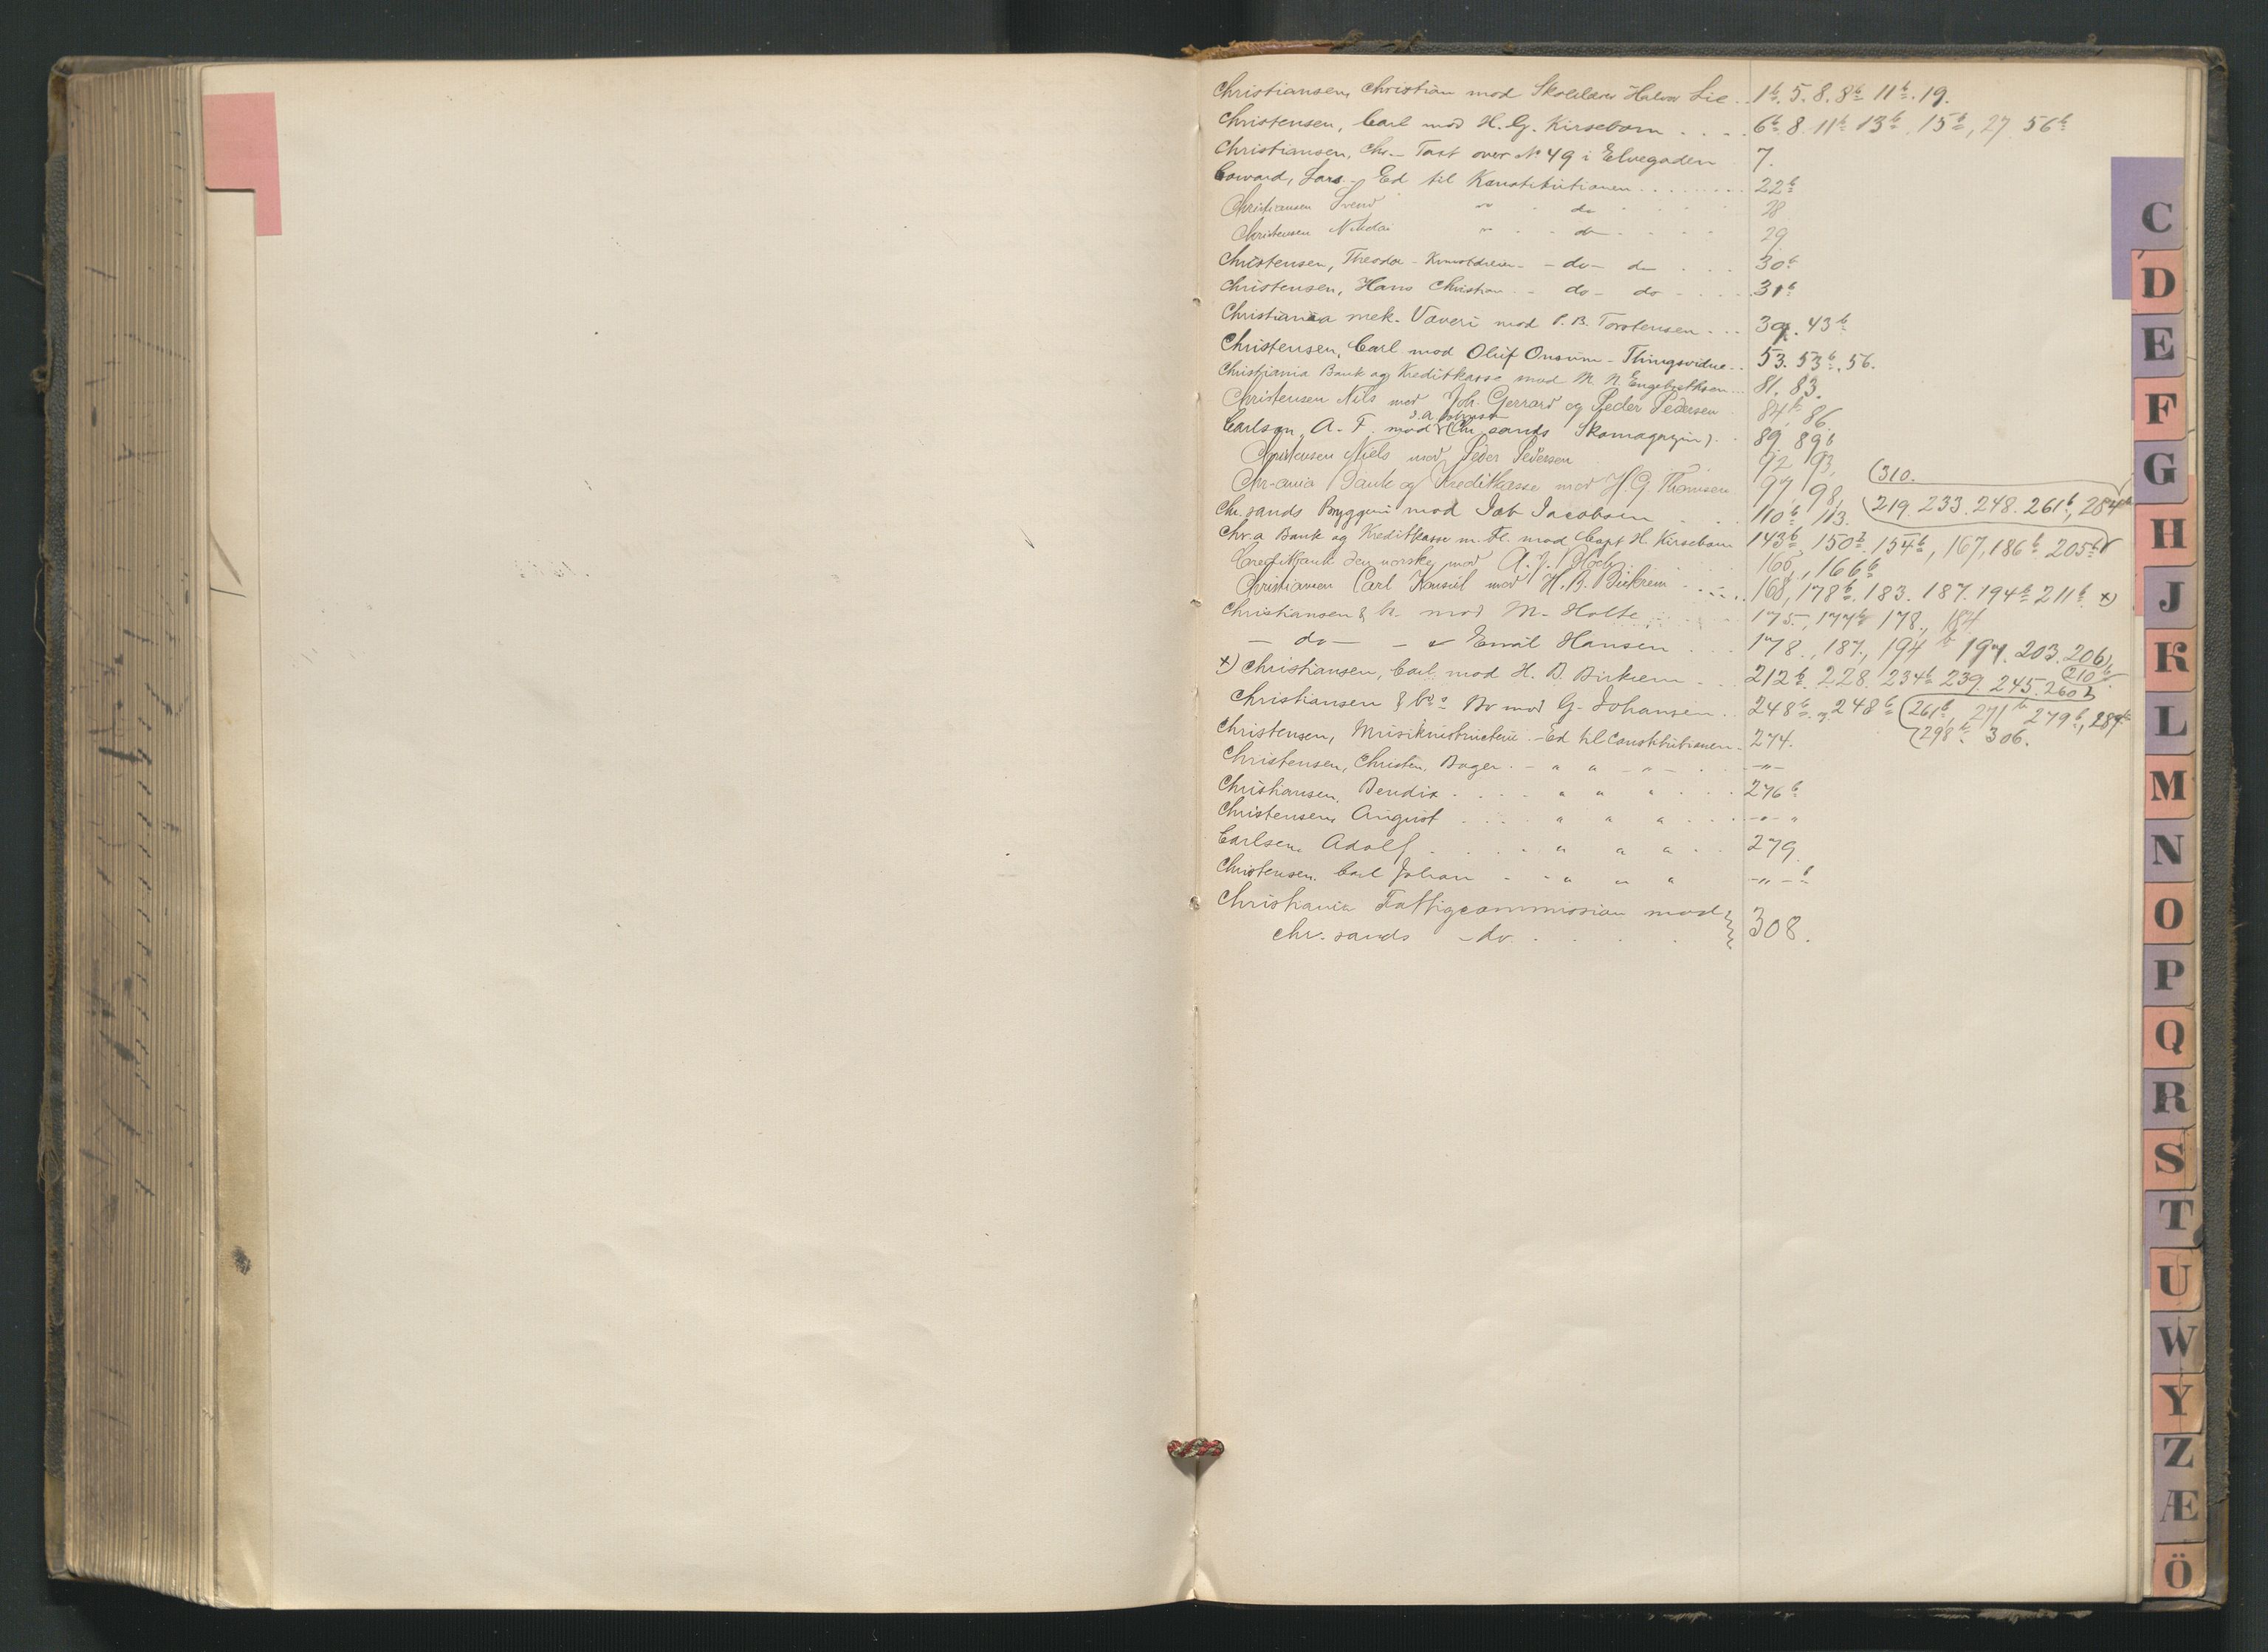 Christiansen, Christian mod Skolelærer Halvor Lie .. 1b. 5. 8. 8b 11b. 19.
Christensen, Carl mod H. G. Kirsebom . . . . 6b. 8. 11b 13b. 15b, 27 56b
Christiansen, Chr. - Taxt over No 49 i Elvegaden 7.
Coward, Lars - Ed til Konstitutionen . . . . . . . . 22b
Christiansen Svend " - do - 28
Christensen Nikolai " - - do - 29
Christensen, Theodor - - do - do . . . 30b
Christensen, Hans Christian - do - do - . . . 31b
Christiania mek. Væveri mod P. B. Torstensen . . . 39. 43b
Christensen, Carl mod Oluf Onsum - Thingsvidne .. 53. 53b. 56.
Christiania Bank og Kreditkasse mod M. N. Engebrethsen ... 81. 83.
Christensen Nils mod Joh. Gerrard og Peder Pedersen 84b 86.
Carlson, A. F. mod (Chr.sands Skomagazin) . . 89. 89b
Christensen Niels mod Peder Pedersen 92, 93,
Chr-ania Bank og Kreditkasse mod H. G. Thomsen 97, 98, (310.
Chr.sands Bryggeri mod Jab Jacobsen . . . 110b, 113. (219. 233. 248. 261b, 284b
Chr.a Bank og Kreditkasse m. Fl. mod Capt H. Kirsebom 143b 150b. 154b, 167, 186b 205b
Creditbank den norske mod A. J. 166, 166b
Christiansen Carl Konsul mod H. B. Birkrem . . . . . 168, 178b. 183. 187. 194b 211b x)
Christiansen & Co. mod M. Holte . . . . . 175, 177b 178, 184
- do - - " Emil Hansen . . . 178., 187., 194b 197. 203. 206),
x) Christiansen, Carl mod H. B. Birkrem . . . 212b. 228. 234b 239. 245. 260b (210b.
Christiansen & Co's Bo mod G. Johansen . . 248b. 248b. (261b, 271b 279b, 289b
Christensen, - Ed til Constitutionen - 274. (298b. 306.
Christensen, Christen, Bager . - " " - " - . . -"-
Christiansen, Bendix . . . . " " " . . . 276b
Christensen, August . . . . " " " . . . -"- "
Carlsen, Adolf . . . . . " " " . . 279.
Christensen, Carl Johan - - " " " -"- b
Christiania Fattigcommission mod } 308.
Chr.sands - do. . . . .
C
D
E
F
G
H
J
K
L
M
N
O
P
Q
R
S
T
U
W
Y
Z
Æ
Ö